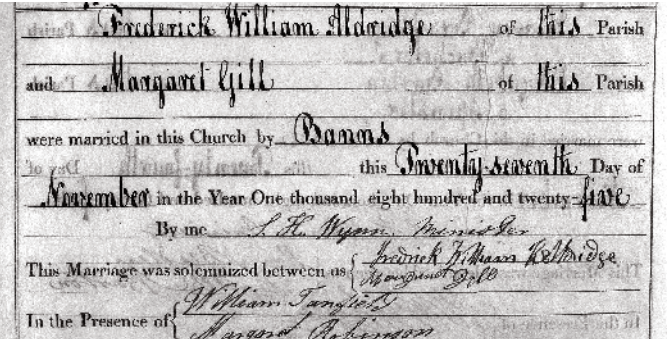 Frederick William Aldridge of this Parish
and Margaret Gill of this Parish
were married in this Church by Banns
this Twenty-seventh Day of
November in the Year One thousand eight hundred and twenty-five
By me S. H. Wynn, Minister
This Marriage was solemnized between us { Fredrick William
Margaret Gill
In the Presence of { William
Margaret Robinson